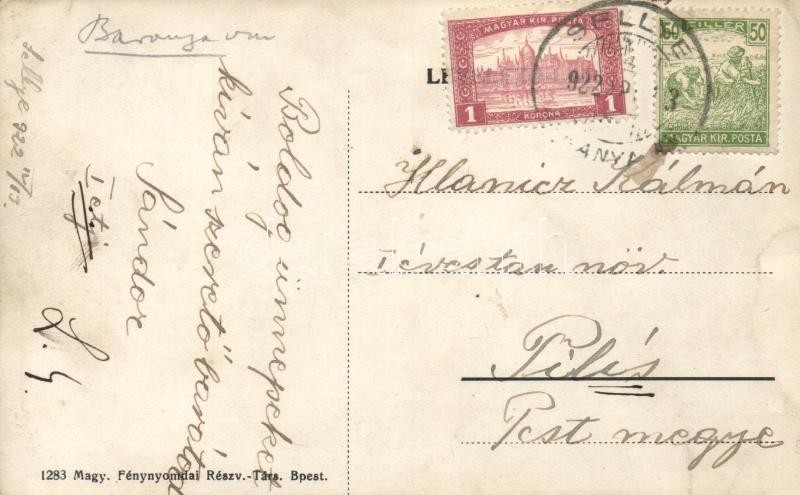 Baranya vm
Sellye 922 IV/13.
Boldog ünnepeket
kíván szerető barátod
Sándor
L. Y.
MAGYAR KIR. POSTA
1
KORONA
1
50 FILLER 50
MAGYAR KIR. POSTA
SELLYE
922
Hlanicz Kálmán
növ.
Pilis
Pest megye
1283 Magy. Fénynyomdai Részv.-Társ. Bpest.